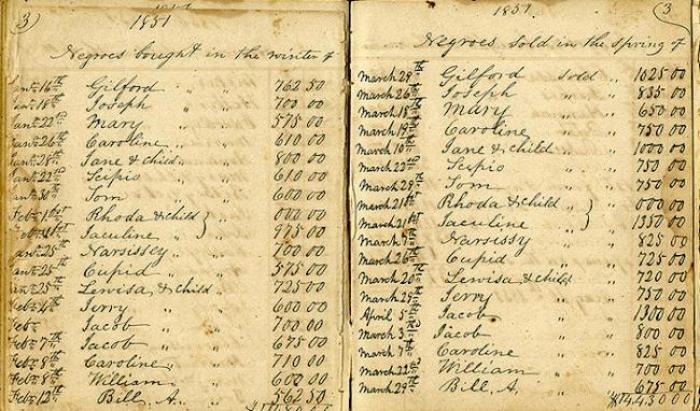 3) 1851
Negroes bought in the winter of
Jan. 16th Gilford " " 762 50
Jan. 18th Joseph " " 700 00
Jan. 22nd Mary " " 575 00
Jan. 26th Caroline " " 610 00
Jan. 28th Jane & child " 800 00
Jan. 22nd Scipio " " 610 00
Jan. 30th Tom " " 600 00
Feb. 1st Rhoda & child } 000 00
Feb. 1st Jaculine " } 975 00
Jan. 25th Narsissey " 700 00
Jan. 25th Cupid " " 575 00
Jan. 25th Lewisa & child 725 00
Feb. 4th Jerry " " 600 00
Feb. Jacob " " 700 00
Feb. 7th Jacob " " 675 00
Feb. 8th Caroline " " 710 00
Feb. 8th William " 600 00
Feb. 12th Bill. A. " 562 50
1851 (3
Negroes sold in the spring of
March 29th Gilford sold " 1025 00
March 26th Joseph " " 835 00
March 15th Mary " " 650 00
March 19th Caroline " " 750 00
March 10th Jane & child " " 1000 00
March 22nd Scipio " " 750 00
March 29th Tom " " 750 00
March 21st Rhoda & child " } 000 00
March 21st Jaculine " } 1350 00
March 7th Narsissy " " 825 00
March 26th Cupid " " 725 00
March 20th Lewisa & child " 720 00
March 25th Jerry " " 750 00
April 5th Jacob " " 1300 00
March 3rd Jacob " " 800 00
March 7th Caroline " " 825 00
March 22nd William " " 700 00
March 29th Bill, A. " " 675 00
$14430 00